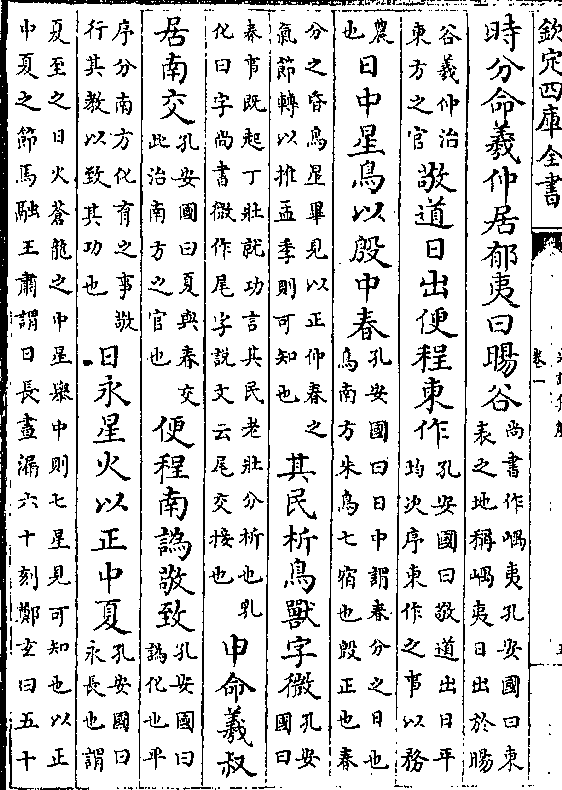 欽定四庫全書
卷一
時分命羲仲居郁夷曰暘谷
尚書作嵎夷孔安國曰東
表之地稱嵎夷日出於暘
谷羲仲治
東方之官
敬道日出便程東作
孔安國曰敬道出日平
均次序東作之事以務
農
也
日中星鳥以殷中春
孔安國曰日中謂春分之日也
鳥南方朱鳥七宿也殷正也春
分之昏鳥星畢見以正仲春之
氣節轉以推孟季則可知也
其民析鳥獸字微
孔安
國曰
春事既起丁壯就功言其民老壯分析也乳
化曰字尚書微作尾字說文云尾交接也
申命羲叔
居南交
孔安國曰夏與春交
此治南方之官也
便程南譌敬致
孔安國曰
譌化也平
序分南方化育之事敬
行其教以致其功也
日永星火以正中夏
孔安國曰
永長也謂
夏至之日火蒼龍之中星舉中則七星見可知也以正
中夏之節馬融王肅謂日長晝漏六十刻鄭玄曰五十